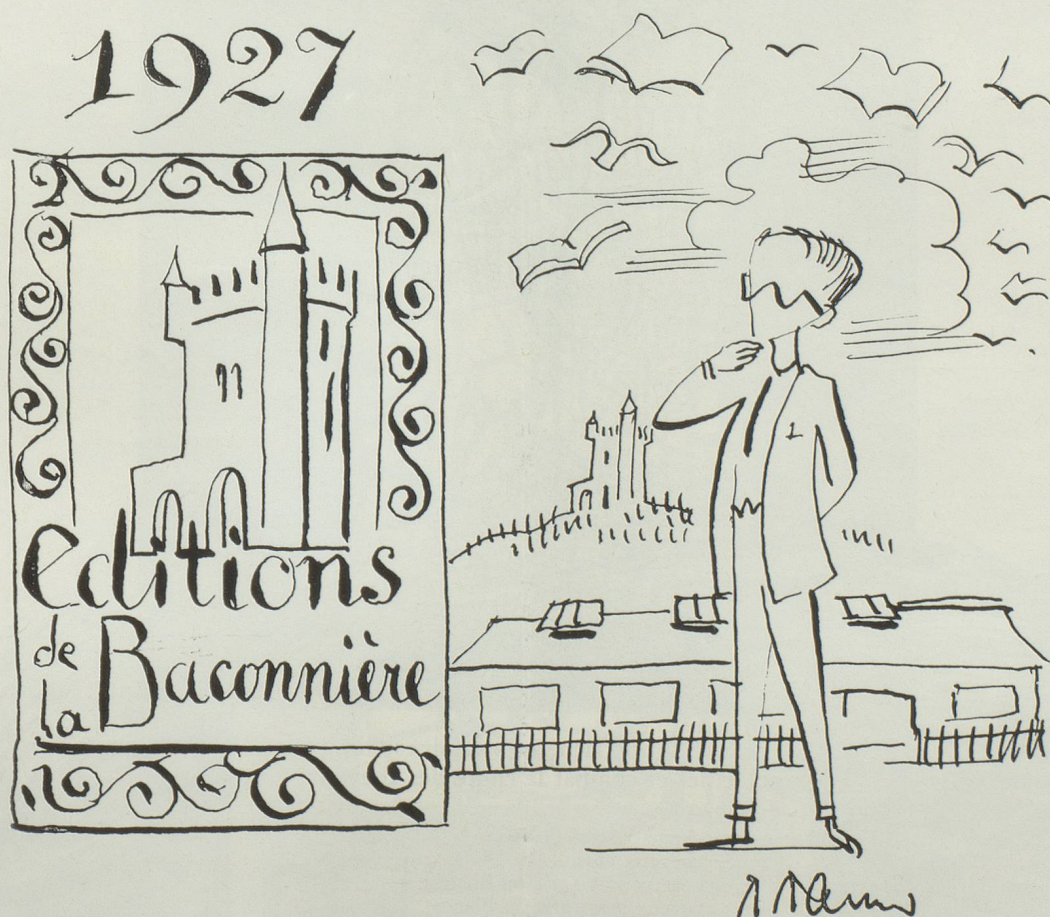 1927
editions
de
la Baconnière